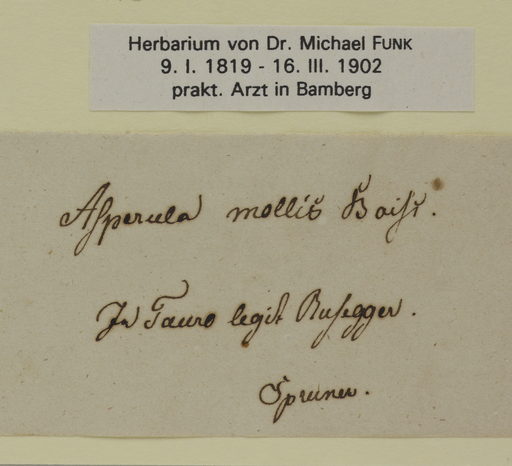 Herbarium von Dr. Michael FUNK
9. I. 1819 - 16. III. 1902
prakt. Arzt in Bamberg
Asperula mollis Boiss.
In Tauro legit Rusegger.
Spruner.